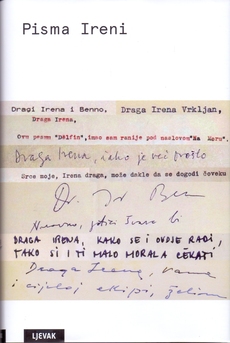 Pisma Ireni
Dragi Irena i Benno, Draga Irena Vrkljan,
Draga Irena,
Ovu pesmu "Delfin", imao sam ranije pod naslovom "Na Moru".
Draga Irena, iako je već prošlo
Srce moje, Irena draga, može dakle da se dogodi čoveku
DRAGA IRENA, KAKO SE I OVDJE RADI,
TAKO SI I TI MALO MORALA ČEKATI
Draga Irena, vama
i cijeloj ekipi, želim
LJEVAK